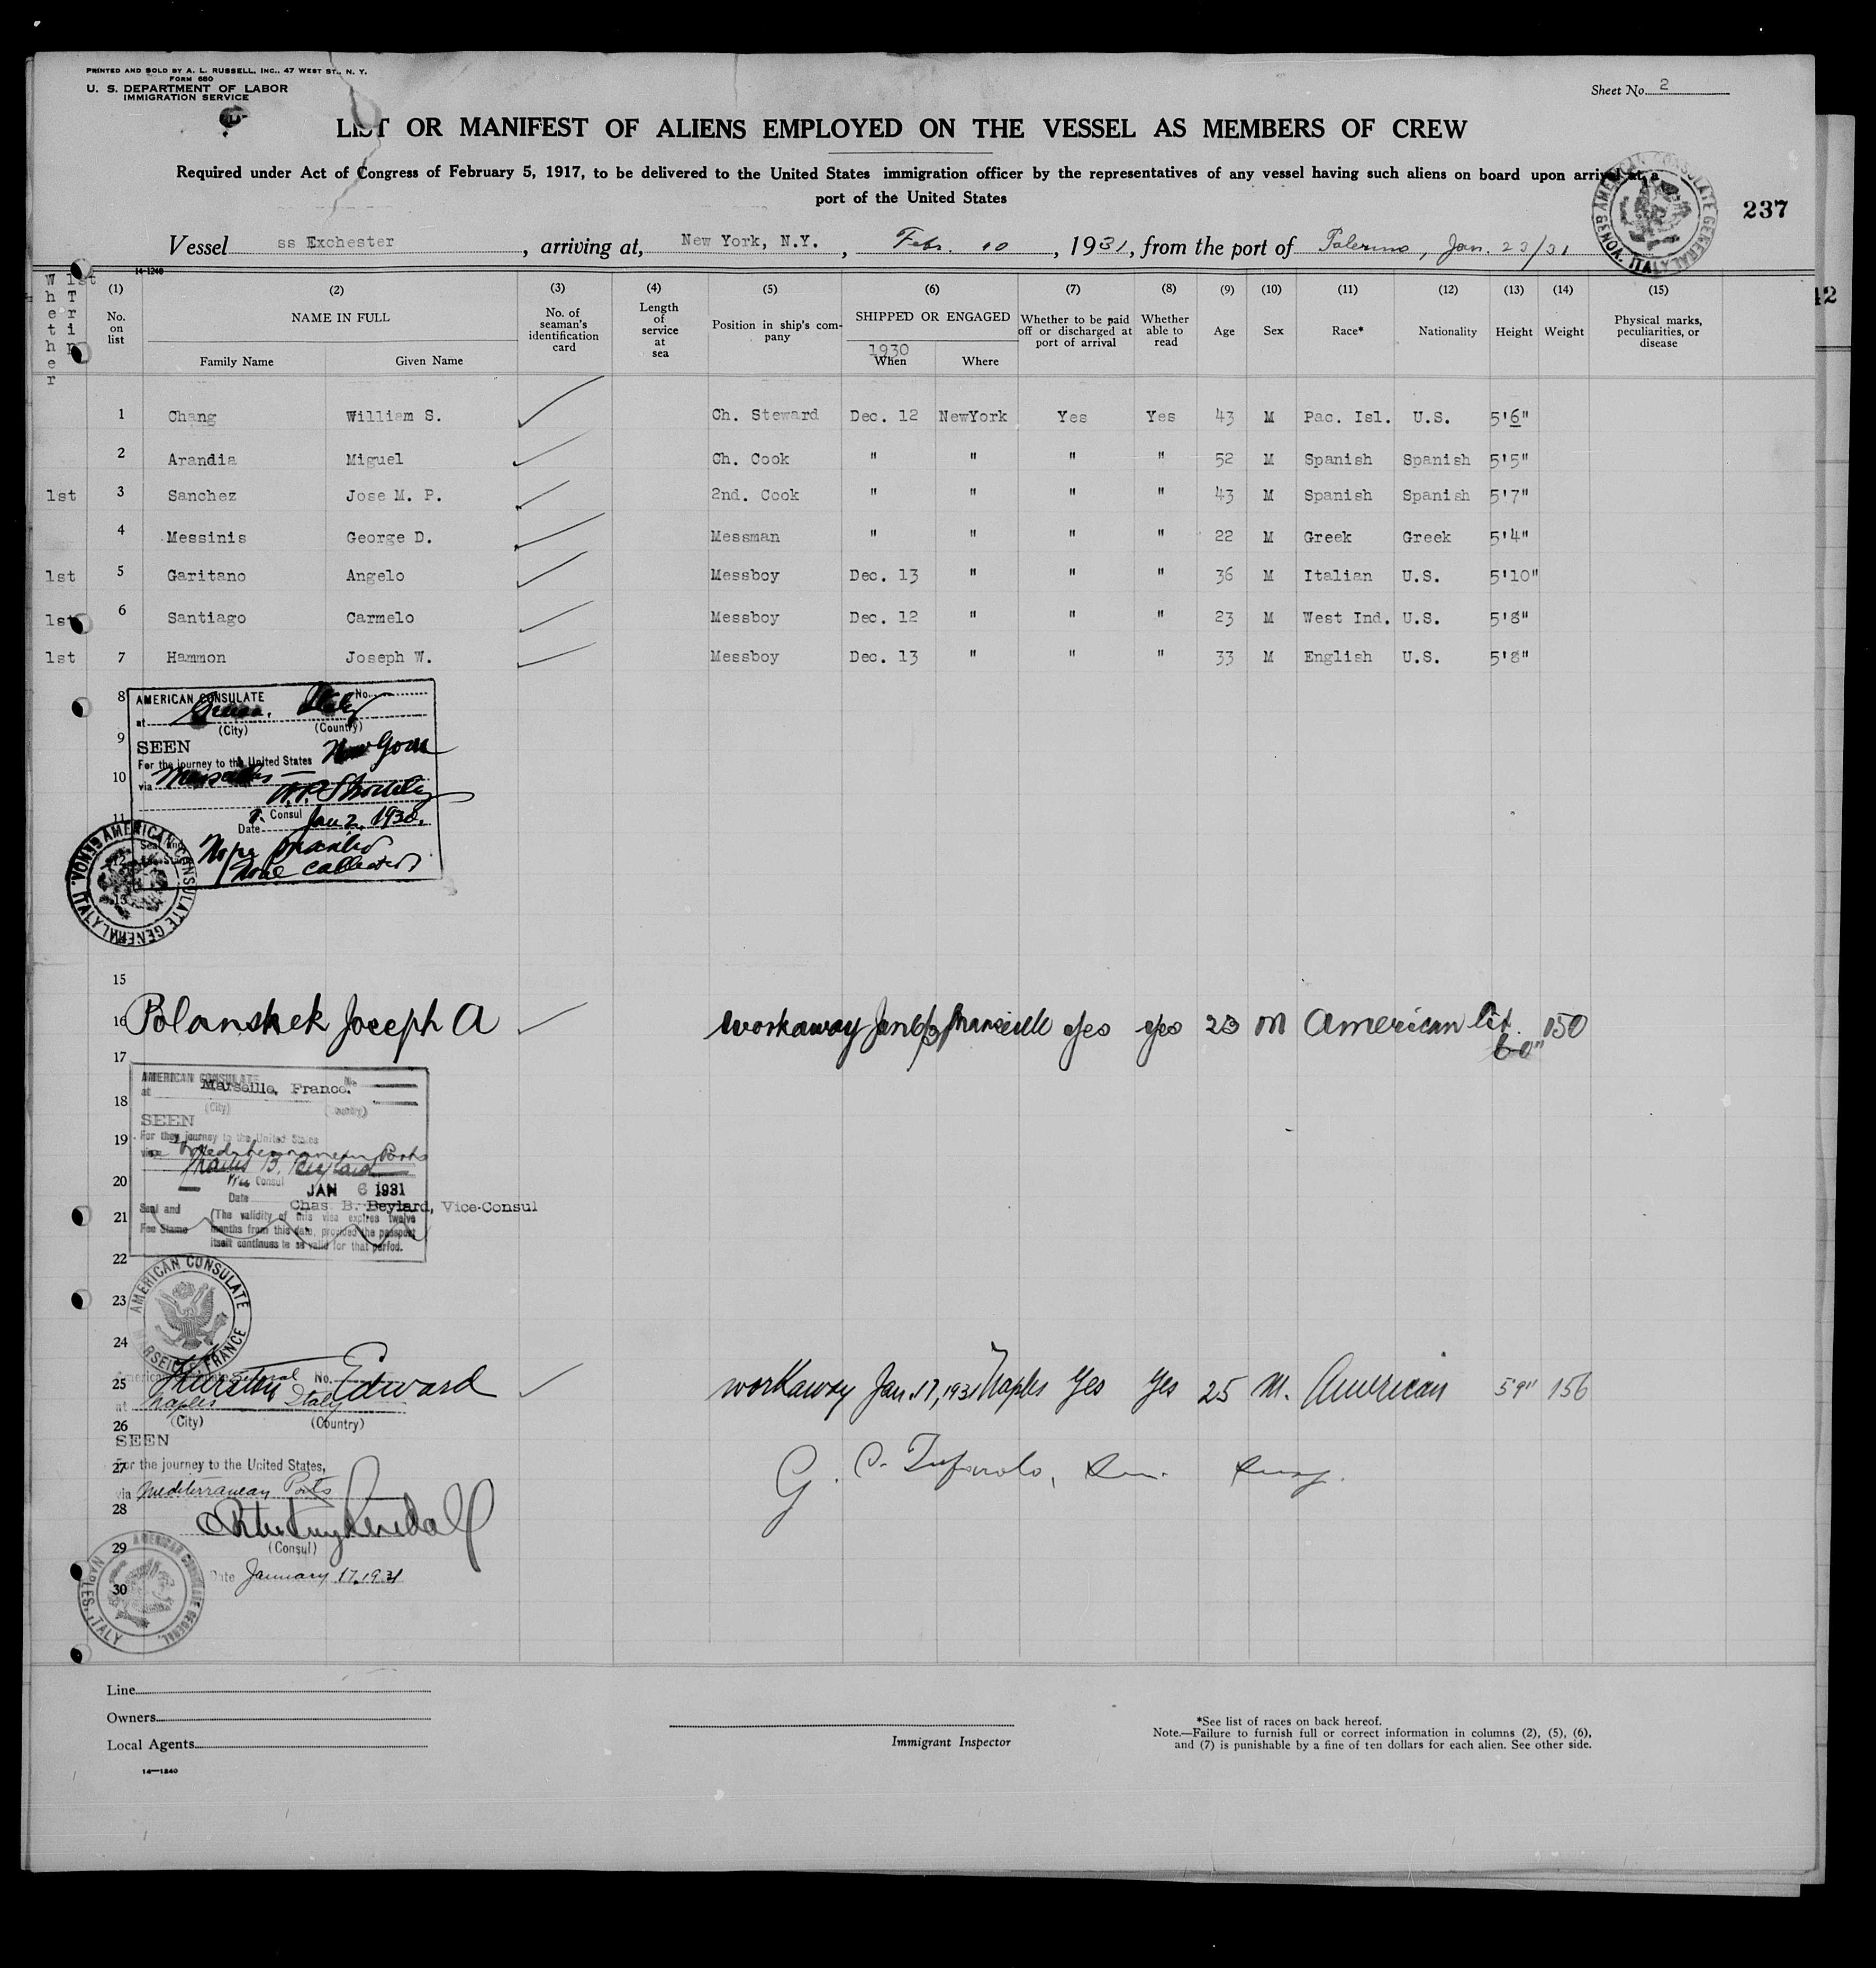 PRINTED AND SOLD BY A. L. RUSSELL, INC., 47 WEST ST., N. Y.
FORM 680
U. S. DEPARTMENT OF LABOR
IMMIGRATION SERVICE
Sheet No. 2
LIST OR MANIFEST OF ALIENS EMPLOYED ON THE VESSEL AS MEMBERS OF CREW
Required under Act of Congress of February 5, 1917, to be delivered to the United States immigration officer by the representatives of any vessel having such aliens on board upon arrival at a
port of the United States
AMERICAN CONSULATE GENERAL GENOA, ITALY
237
Vessel ss Exchester, arriving at, New York, N.Y., Febr. 10, 1931, from the port of Palermo, Jan. 23/31
14-1240
12
Whether 1st Trip
(1) (2) (3) (4) (5) (6) (7) (8) (9) (10) (11) (12) (13) (14) (15)
No. on list
NAME IN FULL
Family Name Given Name
No. of seaman's identification card
Length of service at sea
Position in ship's company
SHIPPED OR ENGAGED
1930
When Where
Whether to be paid off or discharged at port of arrival
Whether able to read
Age Sex Race* Nationality Height Weight
Physical marks, peculiarities, or disease
1 Chang William S. Ch. Steward Dec. 12 NewYork Yes Yes 43 M Pac. Isl. U.S. 5'6"
2 Arandia Miguel Ch. Cook " " " " 52 M Spanish Spanish 5'5"
1st 3 Sanchez Jose M. P. 2nd. Cook " " " " 43 M Spanish Spanish 5'7"
4 Messinis George D. Messman " " " " 22 M Greek Greek 5'4"
1st 5 Garitano Angelo Messboy Dec. 13 " " " 36 M Italian U.S. 5'10"
1st 6 Santiago Carmelo Messboy Dec. 12 " " " 23 M West Ind. U.S. 5'8"
1st 7 Hammon Joseph W. Messboy Dec. 13 " " " 33 M English U.S. 5'8"
8
AMERICAN CONSULATE No.
at Genoa, Italy
(City) (Country)
9
SEEN
For the journey to the United States
10
via Marseilles
11
Consul
Date Jan 2, 1930.
12
Seal and
No fee
None collected
13
AMERICAN CONSULATE GENERAL GENOA, ITALY
15
16 Polanshek Joseph A workaway Jan 6/31 Marseille Yes Yes 23 M American Cit. 6-0" 150
17
AMERICAN CONSULATE No.
at Marseille, France.
18
(City) (Country)
SEEN
19
For the journey to the United States
via Mediterranean Ports
Charles B. Beylard
20
Vice Consul
Date JAN 6 1931
Chas. B. Beylard, Vice-Consul
21
Seal and
Fee Stamp
(The validity of this visa expires twelve
months from this date, provided the passport
itself continues to be valid for that period.
22
AMERICAN CONSULATE MARSEILLE, FRANCE
23
24
25 Thurston Edward workaway Jan. 17, 1931 Naples Yes Yes 25 M. American 5'9" 156
General No.
at Naples Italy
26
(City) (Country)
SEEN
27
For the journey to the United States,
via Mediterranean Ports
G. C.
28
29
(Consul)
Date January 17, 1931
30
AMERICAN CONSULATE GENERAL, NAPLES, ITALY
Line
Owners
Local Agents
Immigrant Inspector
*See list of races on back hereof.
Note.—Failure to furnish full or correct information in columns (2), (5), (6),
and (7) is punishable by a fine of ten dollars for each alien. See other side.
14—1240